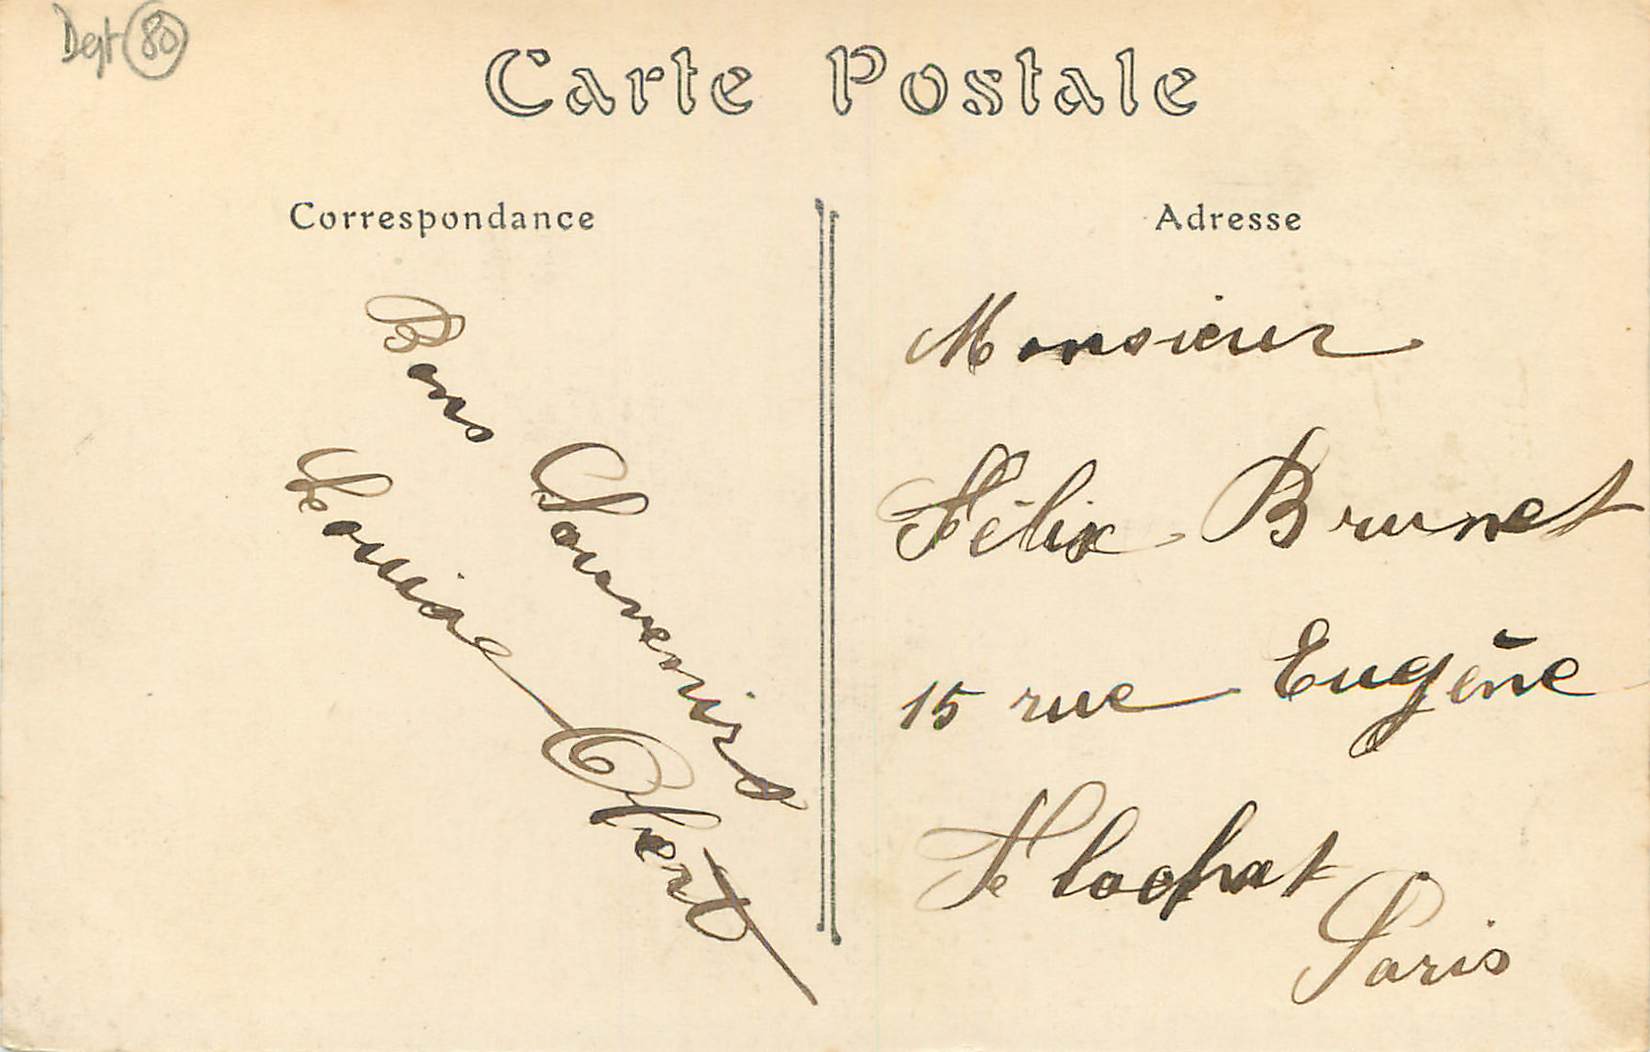 Dept 80
Carte Postale
Correspondance
Bons Souvenirs
Louise Obert
Adresse
Monsieur
Félix Brunet
15 rue Eugène
Flachat
Paris